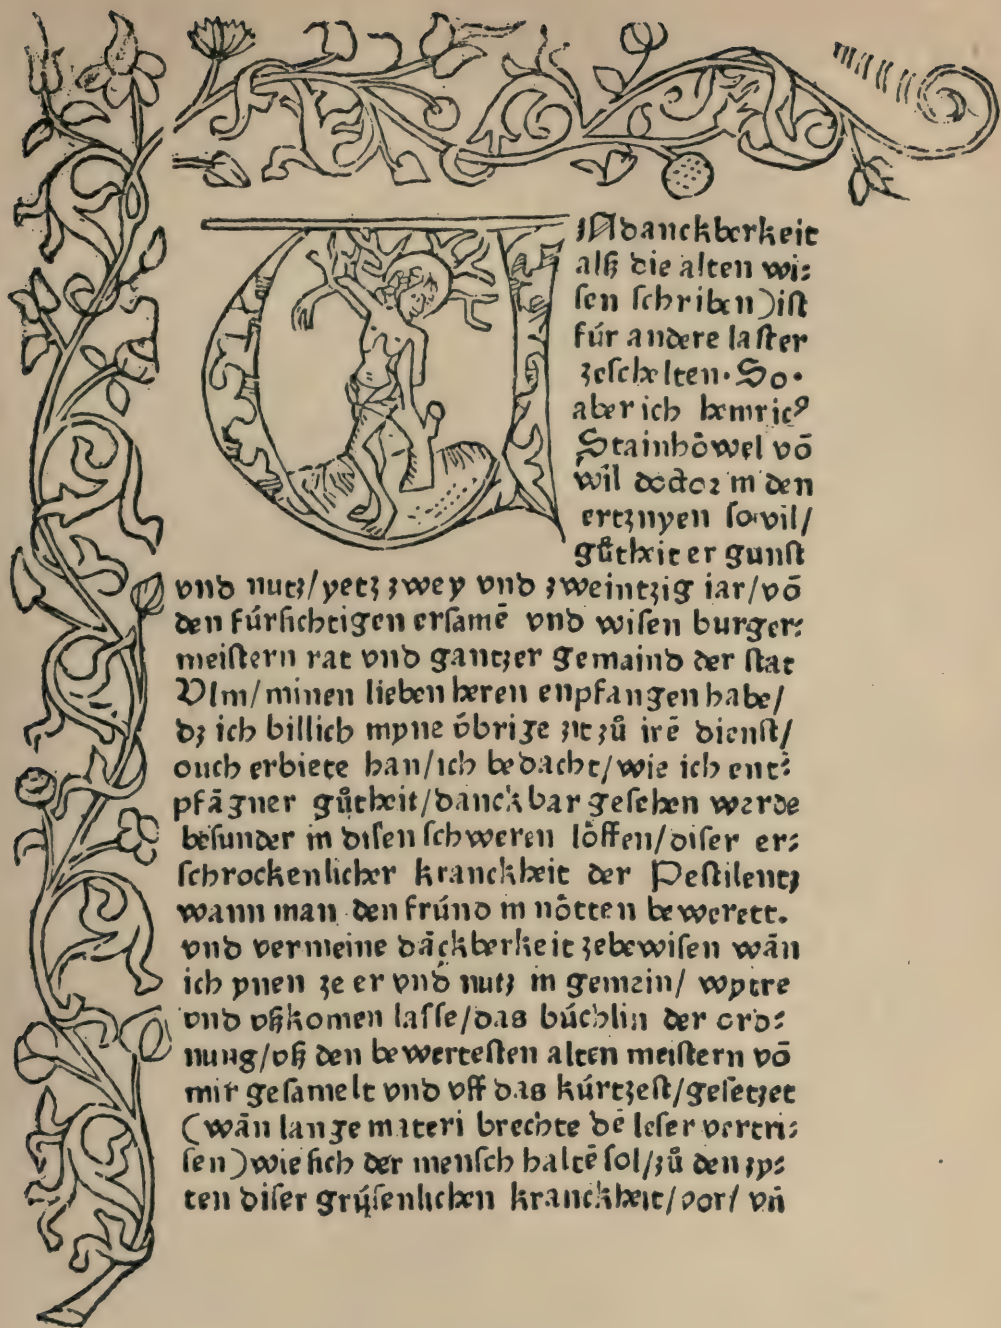 UNdanckberkeit
alß die alten wi⸗
sen schriben)ist
für andere laster
zeschelten. So.
aber ich heinricꝰ
Stainhöwel vō
wil doctor in den
ertznyen so vil/
gůtheit er gunst
vnd nutz/yetz zwey vnd zweintzig iar/vō
den fürsichtigen ersamē vnd wisen burger⸗
meistern rat vnd gantzer gemaind der stat
Vlm/minen lieben heren enpfangen habe/
dz ich billich myne öbrige zit zů irē dienst/
ouch erbiete han/ich bedacht/wie ich ent⸗
pfāgner gůtheit/danckbar gesehen werde
besunder in disen schweren löffen/diser er⸗
schrockenlicher kranckheit der Pestilentz
wann man den fründ in nötten bewerett.
vnd vermeine dāckberkeit zebewisen wān
ich ynen ze er vnd nutz in gemein/ wytre
vnd vßkomen lasse/das büchlin der ord⸗
nung/vß den bewertesten alten meistern vō
mir gesamelt vnd vff das kürtzest/gesetzet
(wān lange materi brechte dē leser vertri⸗
sen)wie sich der mensch haltē sol/zů den zy⸗
ten diser grüsenlichen kranckheit/vor/ vn̄